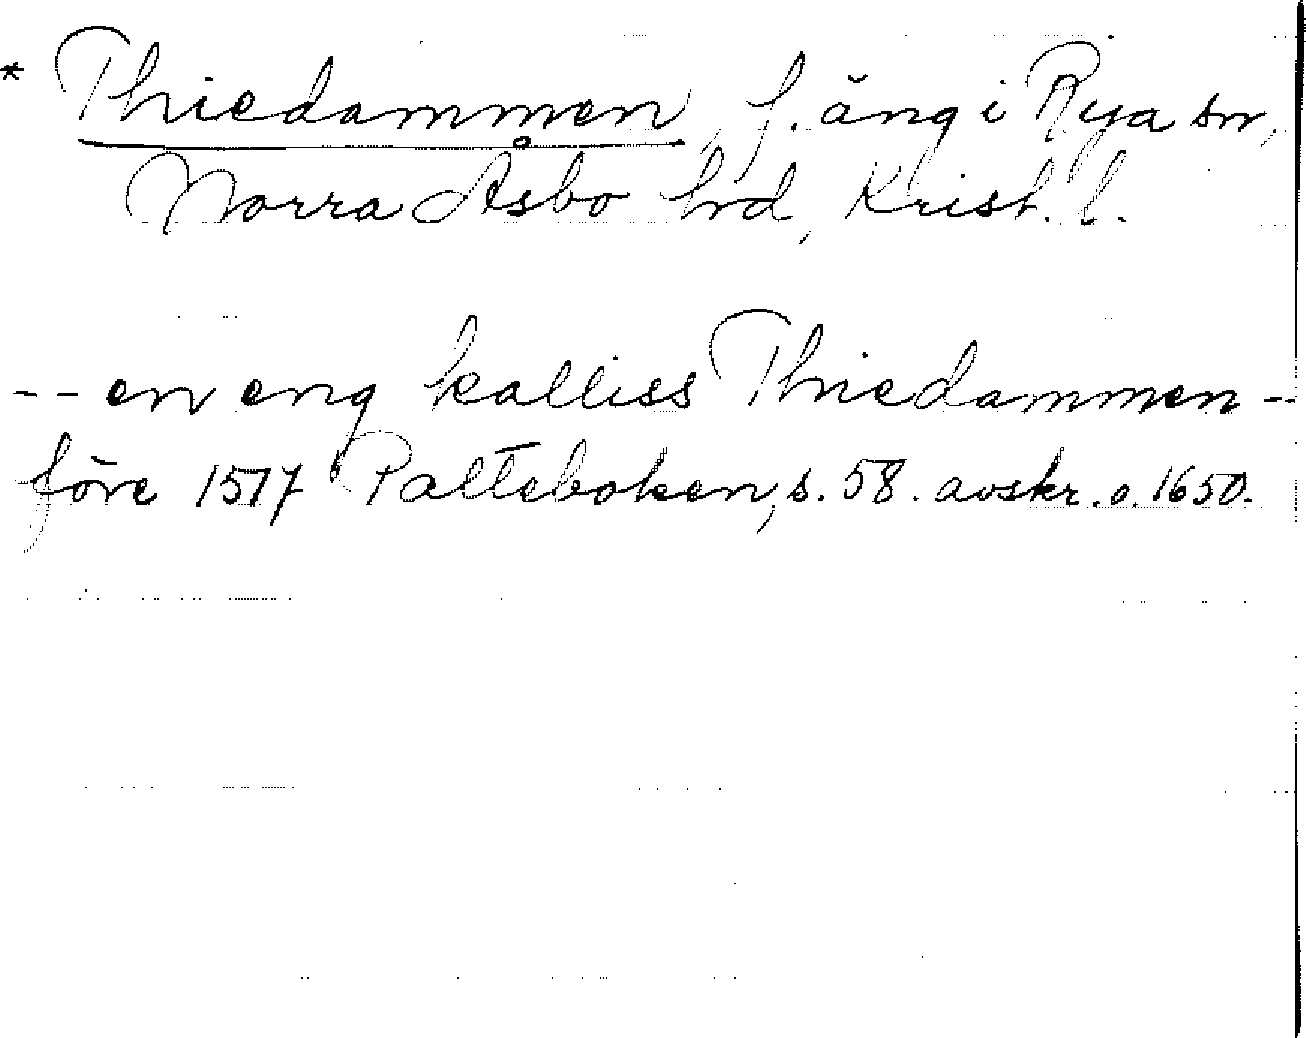 * Thiedammen, f. äng i Rya sn,
Norra Åsbo hd, Krist. l.
-- en eng kalliss Thiedammen --
före 1517 Palteboken, s. 58. avskr. o. 1650.